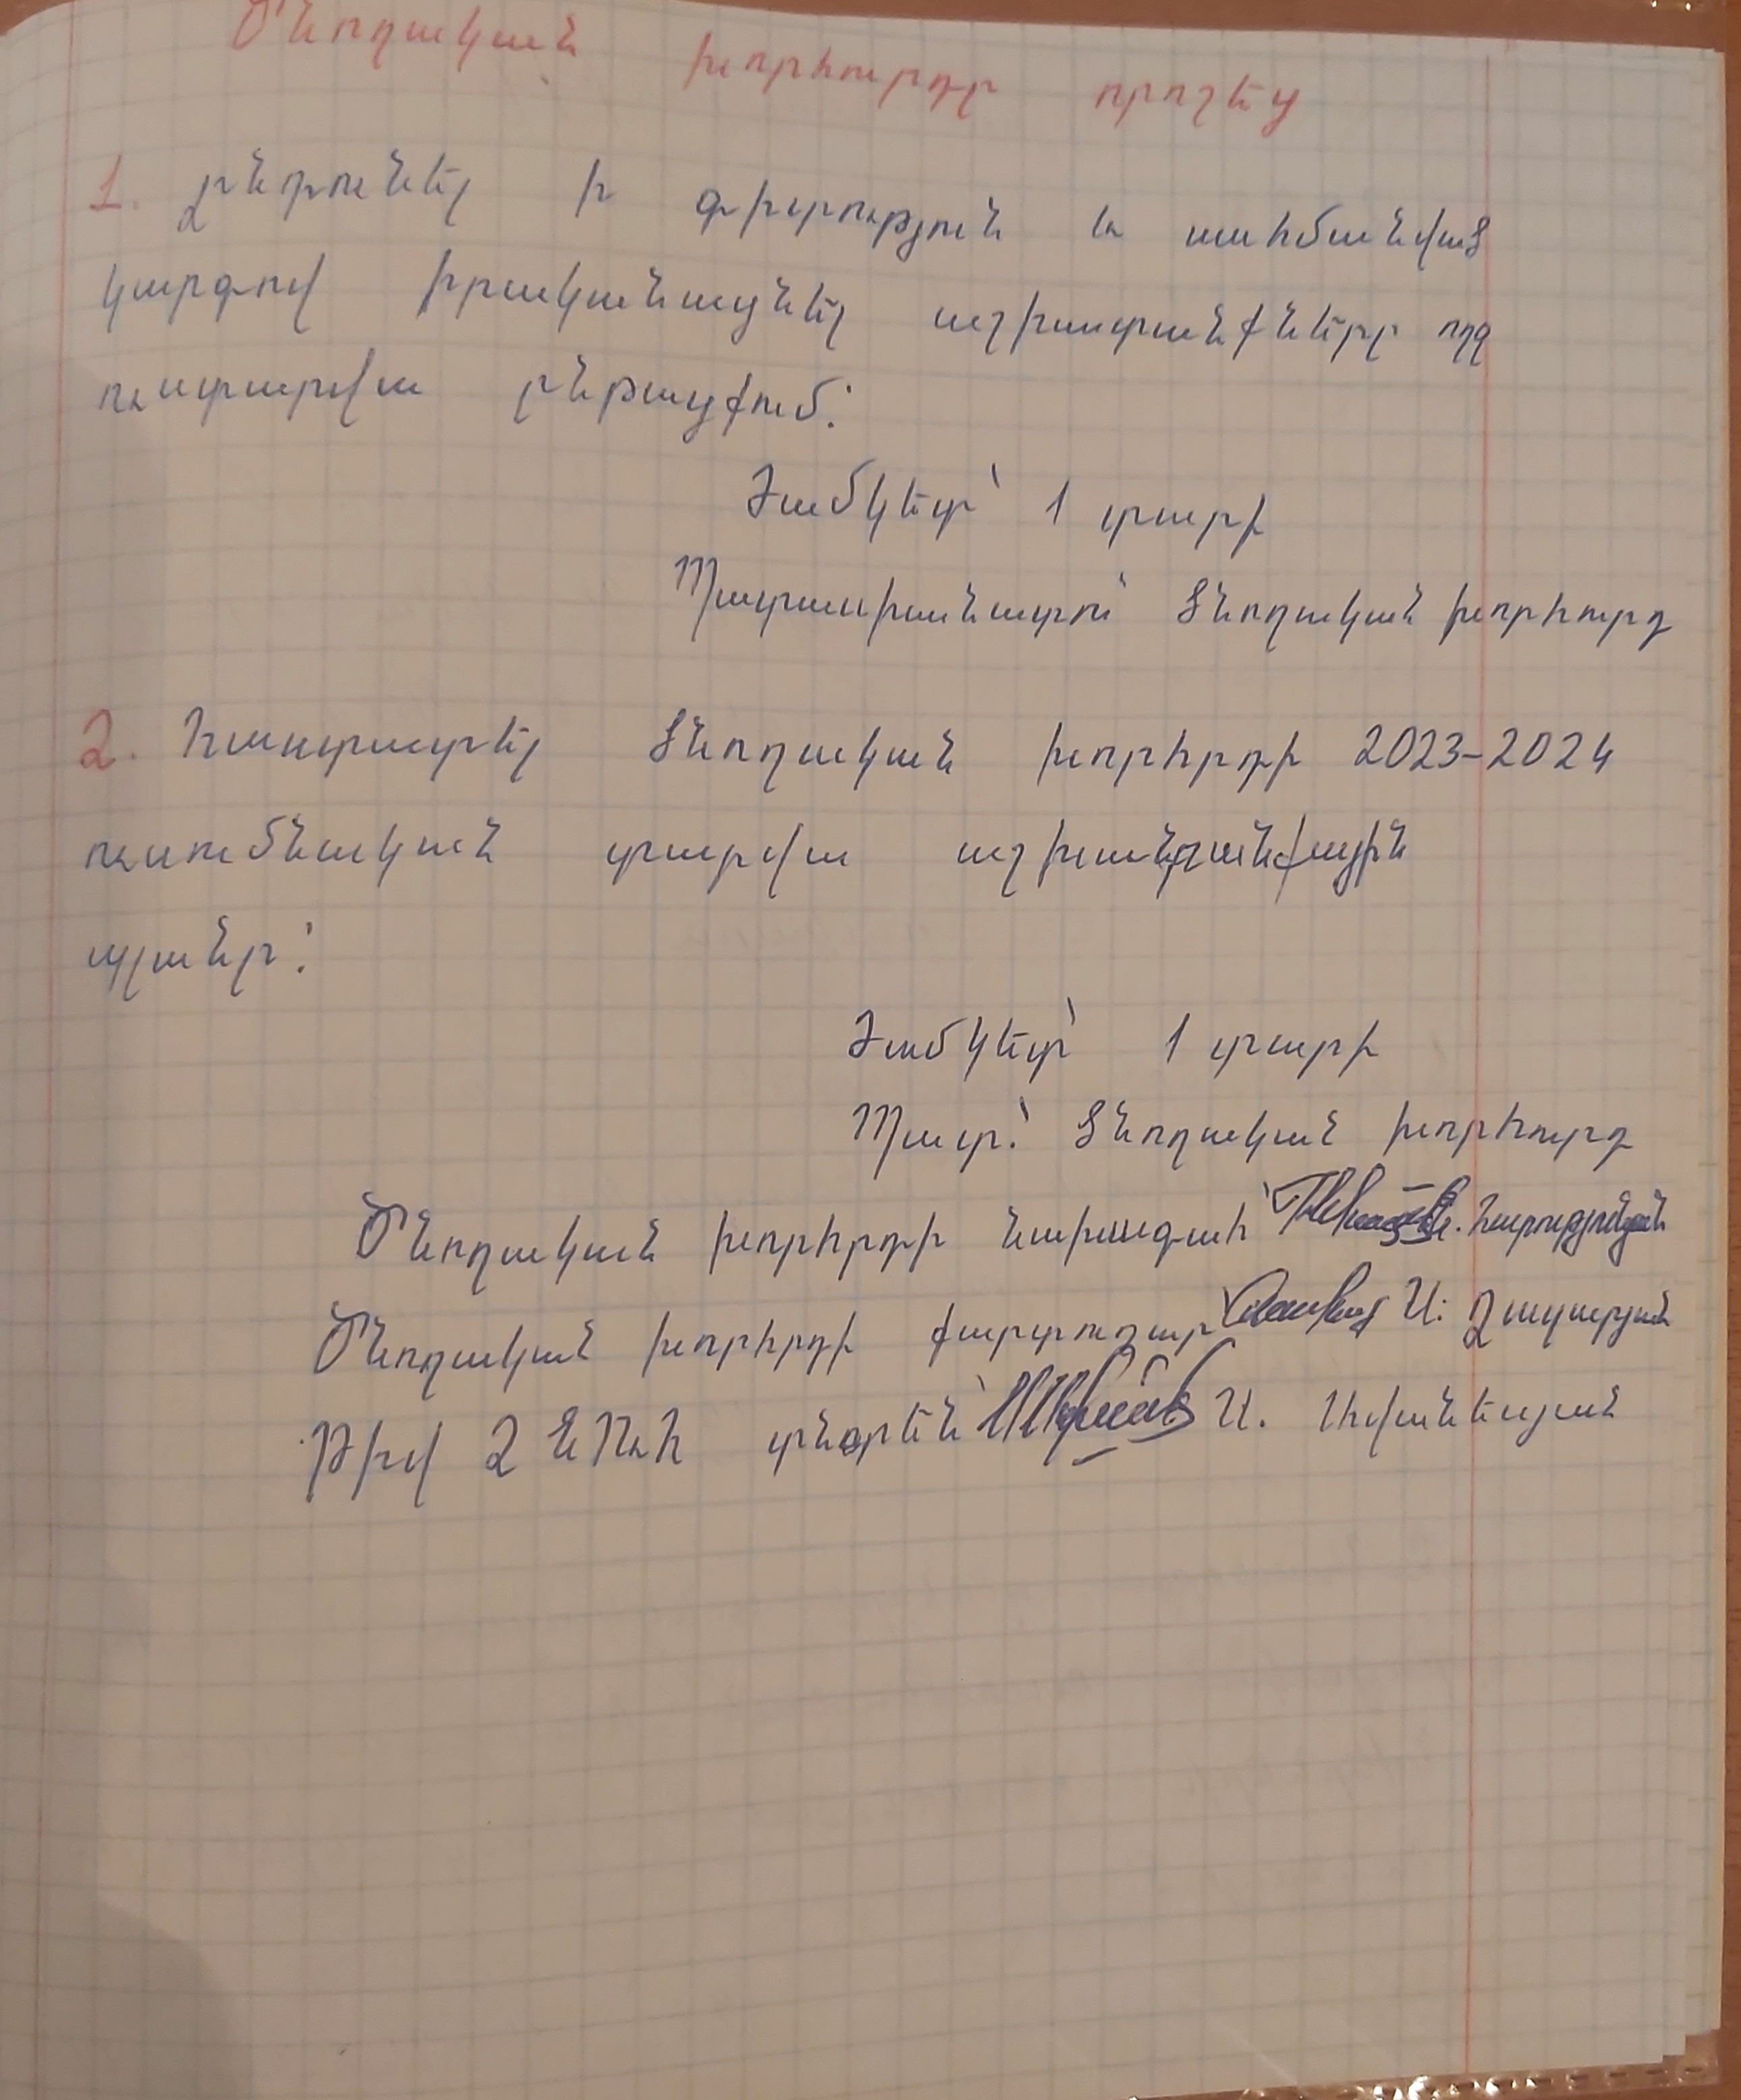 Ծնողական խորհուրդը որոշեց
1. Ընդունել ի գիտություն և սահմանված
կարգով իրականացնել աշխատանքները ողջ
ուստարվա ընթացքում:
Ժամկետ՝ 1 տարի
Պատասխանատու՝ Ծնողական խորհուրդ
2. Հաստատել Ծնողական խորհրդի 2023-2024
ուսումնական տարվա աշխատանքային
պլանը:
Ժամկետ՝ 1 տարի
Պատ.՝ Ծնողական խորհուրդ
Ծնողական խորհրդի նախագահ՝ Հարությունյան
Ծնողական խորհրդի քարտուղար՝ Ա. Զաքարյան
Թիվ 2 ՆՈւՀ տնօրեն՝ Ա. Ավանեսյան